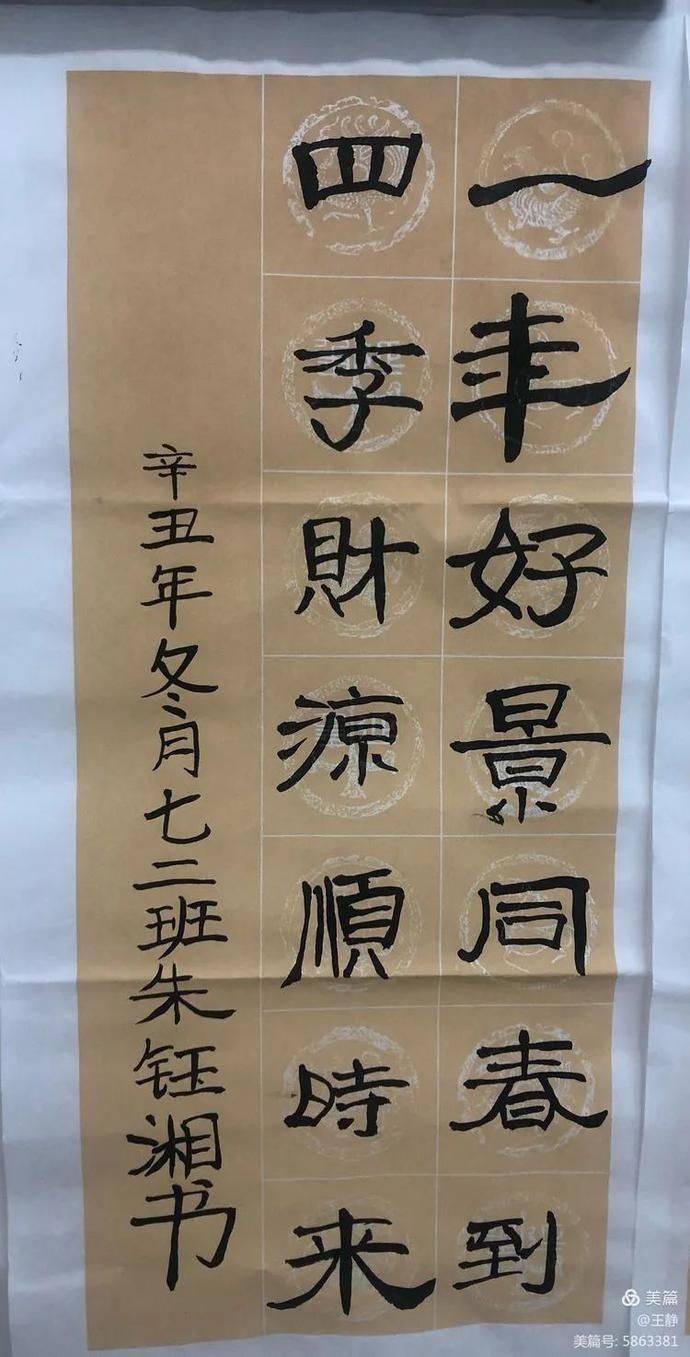 一年好景同春到
四季財源順時来
辛丑年冬月七二班朱钰湘书
美篇
@王静
美篇号: 5863381